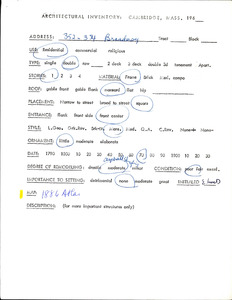 ARCHITECTURAL INVENTORY: CAMBRIDGE, MASS. 196
ADDRESS: 352-354 Broadway Tract Block
USE: Residential commercial religious
TYPE: single double row 2 deck 3 deck double 3d tenement Apart.
STORIES: 1 2 3 4 MATERIAL: Frame Brick Med. compo
ROOF: gable front gable flank mansard flat hip
PLACEMENT: Narrow to street broad to street square
ENTRANCE: flank front side front center
STYLE:
ORNAMENT: little moderate elaborate
DATE: 1790 1800 10 20 30 40 50 60 70 80 90 1900 10 20 30
DEGREE OF REMODELING: drastic moderate minor CONDITION: poor fair excel.
IMPORTANCE TO SETTING: detrimental none moderate great INITIALED
MAP: 1886 Atlas
DESCRIPTION: (for more important structures only)